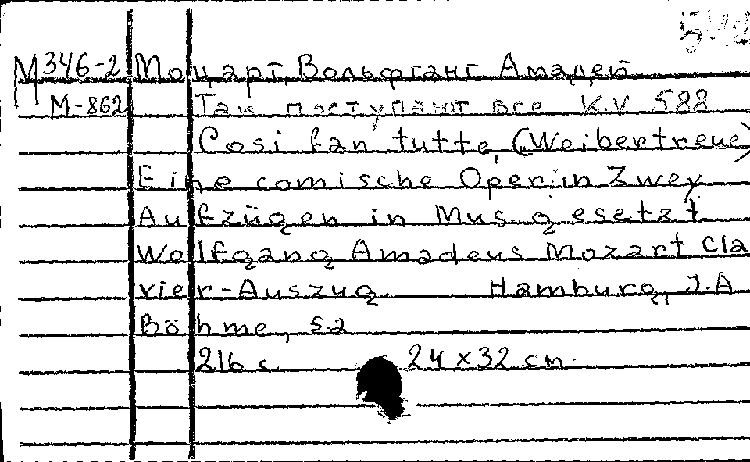 М346-2 Моцарт, Вольфганг Амадей
М-862 Так поступают все K.V 588
Cosi fan tutte, (Weibertreue)
Eine comische Oper in Zwey
Aufzügen in Mus gesetzt
Wolfgang Amadeus Mozart Cla
vier-Auszug Hamburg, J.A
Böhme, sa
216 с. 24 x 32 cm.